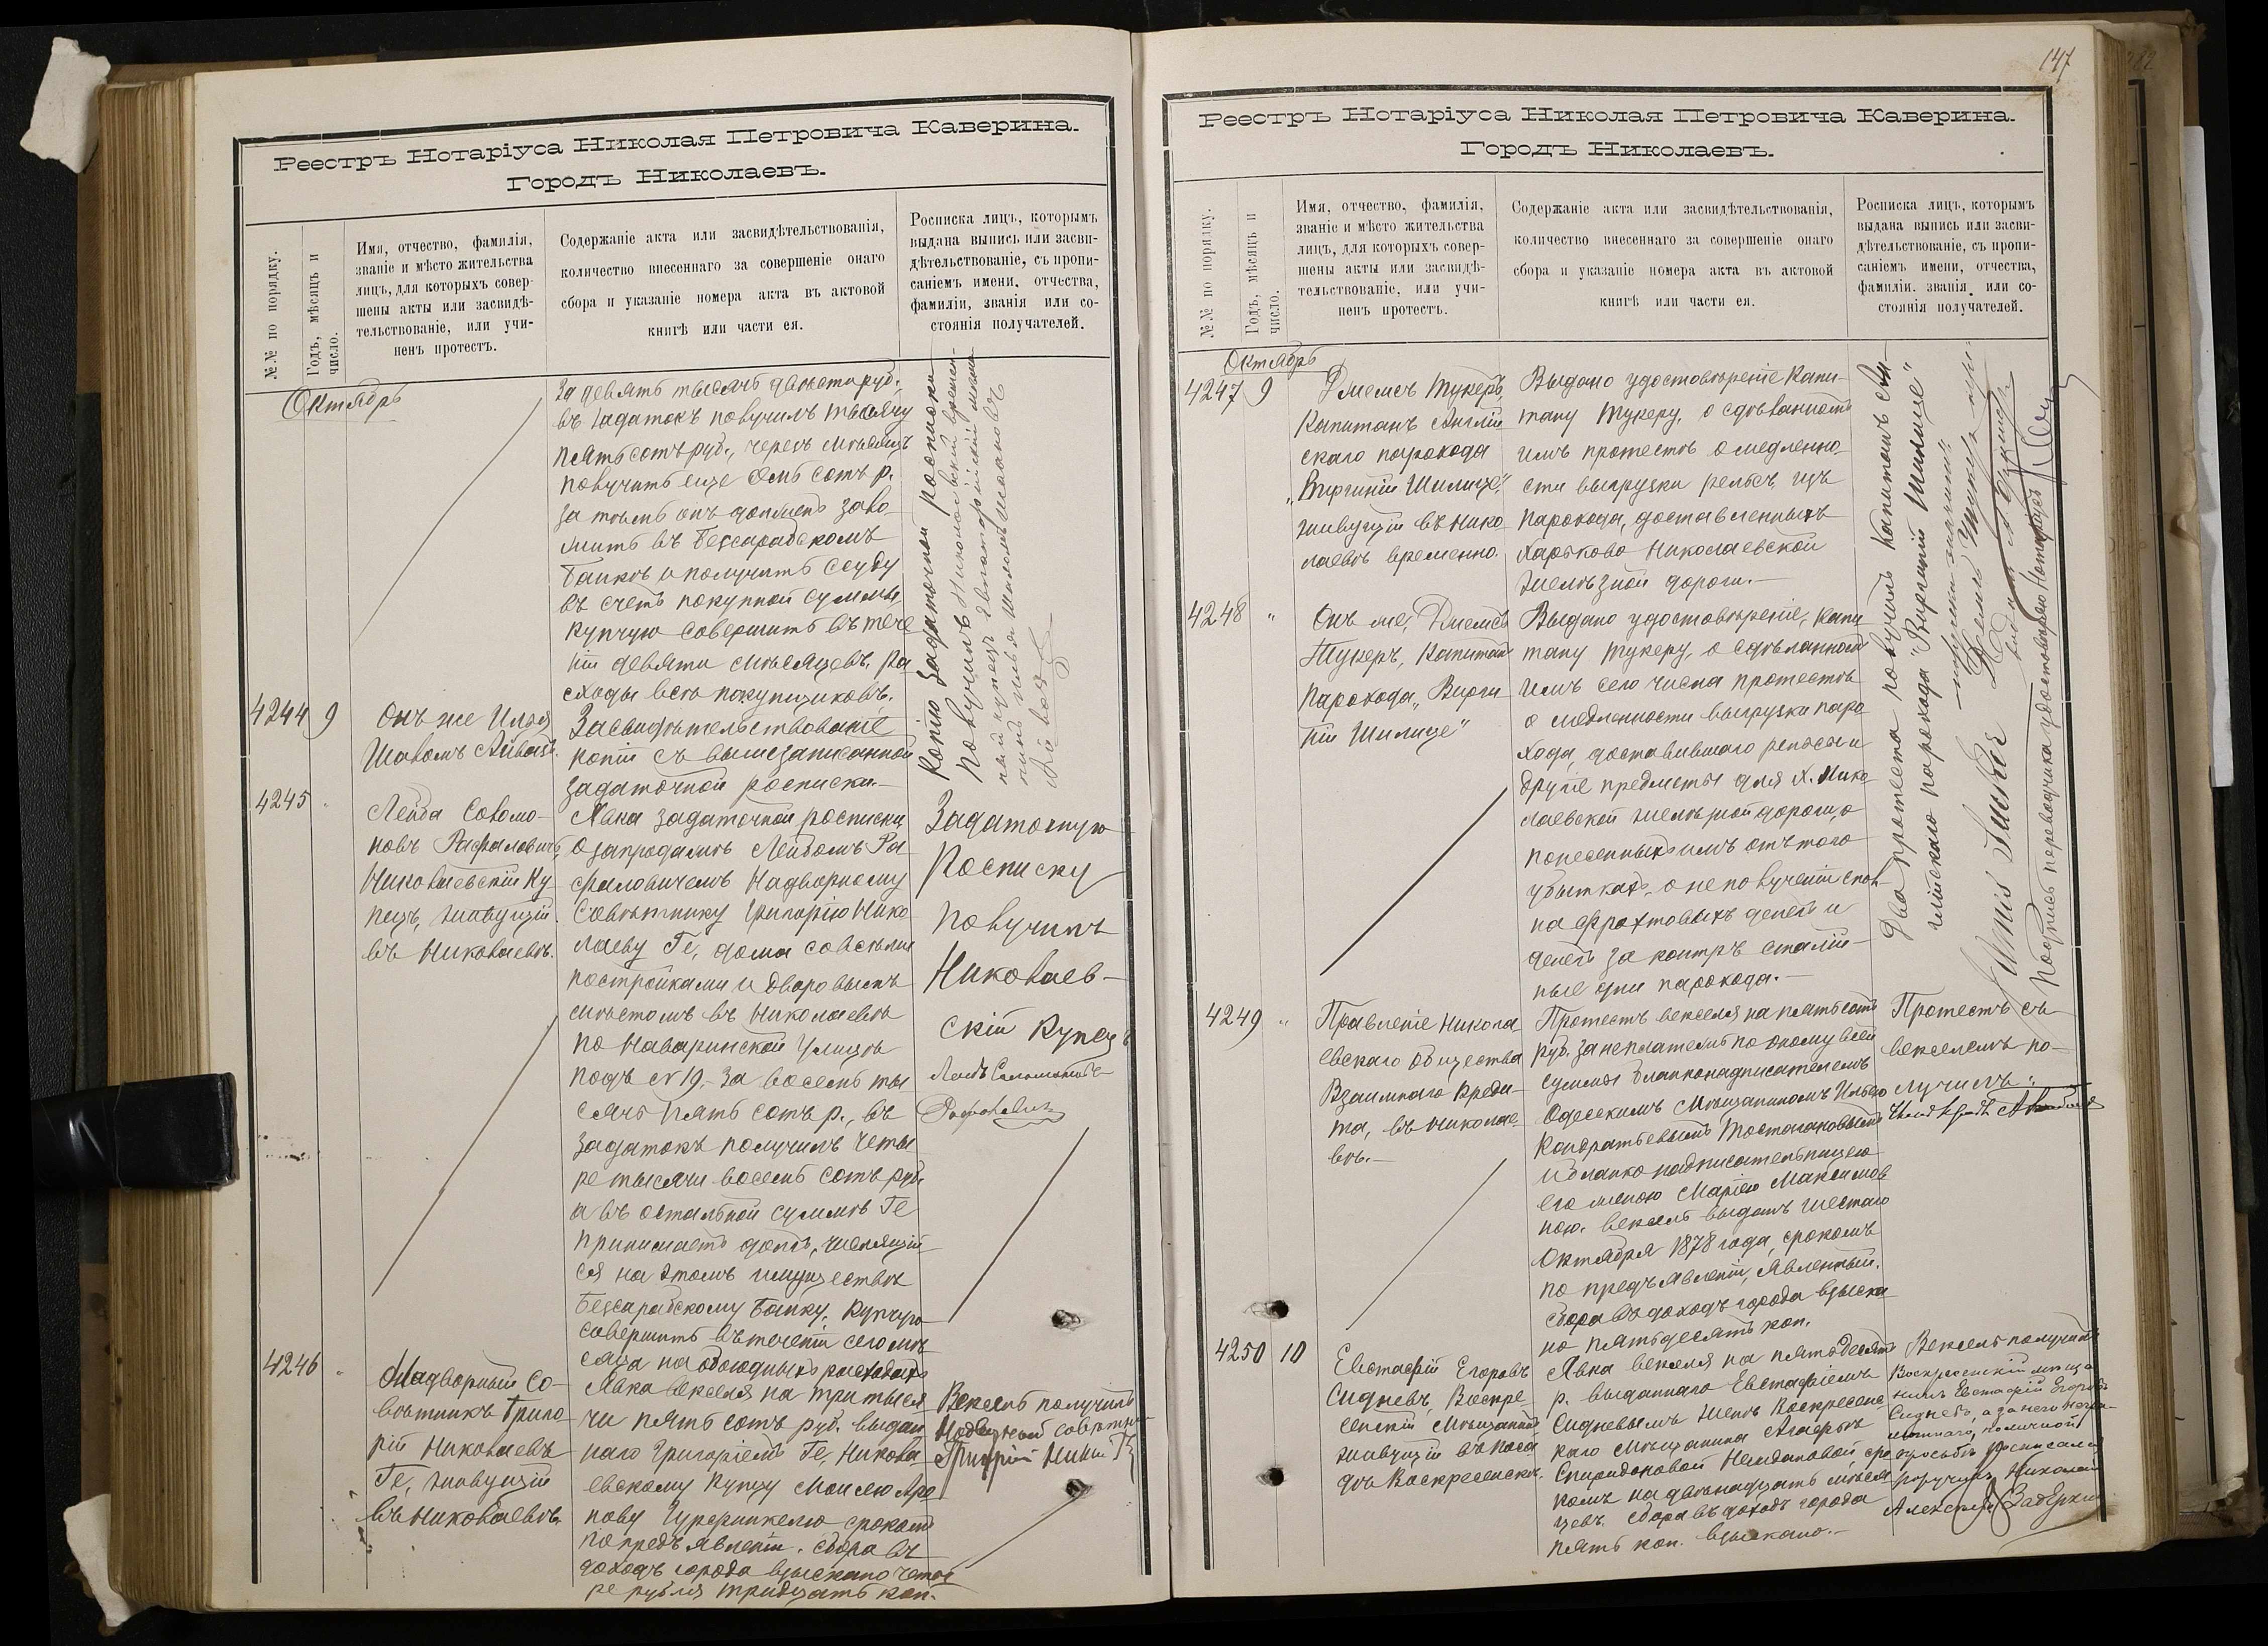 Реестръ Нотаріуса Николая Петровича Каверина.
Городъ Николаевъ.
№№ по порядку.
Годъ, мѣсяцъ и
число.
Имя, отчество, фамилія,
званіе и мѣсто жительства
лицъ, для которыхъ совер-
шены акты или засвидѣ-
тельствованіе, или учи-
ненъ протестъ.
Содержаніе акта или засвидѣтельствованія,
количество внесеннаго за совершеніе онаго
сбора и указаніе номера акта въ актовой
книгѣ или части ея.
Росписка лицъ, которымъ
выдана выпись или засви-
дѣтельствованіе, съ пропи-
саніемъ имени, отчества,
фамиліи, званія или со-
стоянія получателей.
Октябрь
за девять тысячъ двѣсти руб.,
въ задатокъ получилъ тысячу
пятьсотъ руб., черезъ мѣсяцъ
получитъ еще семь сотъ р.
затѣмъ онъ долженъ зало-
жить въ Бессарабскомъ
банкѣ и получить ссуду
въ счетъ покупной суммы,
купчую совершить въ тече
ніи девяти мѣсяцевъ, ра
сходы всего покупщиковъ.
4244 9
Онъ же Илья
Шаломъ Айвазъ.
Засвидѣтельствованіе
копіи съ вышезаписанной
задаточной росписки.—
Копію задаточной росписки
получилъ Николаевскій времен-
ный купецъ Евпаторійскій мѣща-
нинъ Илья Шаломъ
Айвазъ
4245 "
Лейба Соломо-
новъ Рафаловичъ,
Николаевскій Ку
пецъ, живущій
въ Николаевѣ.
Явка задаточной росписки
о запродажѣ Лейбомъ Ра
фаловичемъ Надворному
Совѣтнику Григорію Нико
лаеву Ге, дома со всѣми
постройками и дворовымъ
мѣстомъ въ Николаевѣ
по Наваринской улицѣ
подъ № 19.— за восемь ты
сячъ пять сотъ р., въ
задатокъ получилъ четы
ре тысячи восемь сотъ руб
а въ остальной суммѣ Ге
принимаетъ долгъ, числящій
ся на этомъ имуществѣ
Бессарабскому Банку, купчую
совершить въ теченіи сего мѣ
сяца на обоюдныхъ расходахъ
Задаточную
Росписку
получилъ
Николаев-
скій Купецъ
Лейбъ Соломоновъ
Рафаловичъ
4246 "
Надворный Со-
вѣтникъ Григо
рій Николаевъ
Ге, живущій
въ Николаевѣ
Явка векселя на три тыся
чи пять сотъ руб. выдан
наго Григоріемъ Ге, Никола
евскому Купцу Моисею Аро
нову Гурфинкелю срокомъ
по предъявленіи. сбора въ
доходъ города взыскано четы
ре рубля тридцать коп.
Вексель получилъ
Надворный совѣтникъ
Григорій Ник. Ге
147
Реестръ Нотаріуса Николая Петровича Каверина.
Городъ Николаевъ.
№№ по порядку.
Годъ, мѣсяцъ и
число.
Имя, отчество, фамилія,
званіе и мѣсто жительства
лицъ, для которыхъ совер-
шены акты или засвидѣ-
тельствованіе, или учи-
ненъ протестъ.
Содержаніе акта или засвидѣтельствованія,
количество внесеннаго за совершеніе онаго
сбора и указаніе номера акта въ актовой
книгѣ или части ея.
Росписка лицъ, которымъ
выдана выпись или засви-
дѣтельствованіе, съ пропи-
саніемъ имени, отчества,
фамиліи. званія или со-
стоянія получателей.
Октябрь
4247 9
Джемсъ Тукеръ,
Капитанъ Англій
скаго парохода
„Виргиніи Шилизе",
живущій въ Нико
лаевѣ временно.
Выдано удостовѣреніе Капи-
тану Тукеру, о сдѣланномъ
имъ протестѣ о медленно-
сти выгрузки рельсъ изъ
парохода, доставленныхъ
Харьково Николаевской
желѣзной дороги.—
4248 "
Онъ же, Джемсъ
Тукеръ, Капитанъ
парохода „Вирги
ніи Шилизе"
Выдано удостовѣреніе, Капи
тану Тукеру, о сдѣланномъ
имъ сего числа протестѣ
о медленности выгрузки паро
хода, доставившаго рельсы и
другіе предметы для Х. Нико
лаевской желѣзной дороги, о
понесенныхъ имъ отъ того
убыткахъ, о неполученіи спол-
на фрахтовыхъ денегъ и
денегъ за контръ сталій-
ные дни парохода.—
Два протеста получилъ Капитанъ Ан-
глійскаго парохода „Виргиніи Шилизе"
Джемсъ Тукеръ
James Tucker
Подпись переводчика удостовѣряю Нотаріусъ
4249 "
Правленіе Никола
евскаго Общества
Взаимнаго Креди-
та, въ Николае
вѣ.—
Протестъ векселя на пятьсотъ
руб. за неплатежъ по оному всей
суммы бланконадписателемъ
Одесскимъ Мѣщаниномъ Ильею
Кондратьевымъ
и бланконадписательницею
его женою Маріею Максимов
ною. вексель выданъ шестаго
Октября 1878 года, срокомъ
по предъявленіи, явленный.
сбора въ доходъ города взыска
но пятьдесятъ коп.
Протестъ съ
векселемъ по-
лучилъ:
4250 10
Евстафій Егоровъ
Сидневъ, Воскре
сенскій Мѣщанинъ,
живущій въ поса
дѣ Воскресенскѣ.
Явка векселя на пятьдесятъ
р. выданнаго Евстафіемъ
Сидневымъ женѣ Воскресенс
каго Мѣщанина Агафьѣ
Спиридоновой Неждановой, сро
комъ на двѣнадцать мѣся
цевъ. сбора въ доходъ города
пять коп. взыскано.—
Вексель получилъ
Воскресенскій мѣща
нинъ Евстафій Егоровъ
Сидневъ, а за него негра-
мотнаго, по личной
просьбѣ росписался
поручикъ Николай